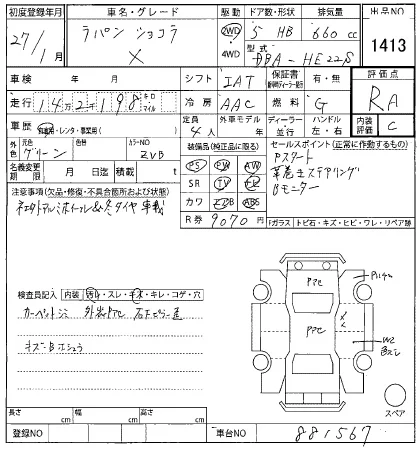 初度登録年月 車名・グレード 駆動 ドア数・形状 排気量 出品NO
27/1月 ラパン ショコラ X 2WD 4WD 5 HB 660 cc 1413
型式 DBA-HE22S
車検 年 月 シフト IAT 保証書 有・無 評価点
走行 142千198 キロ マイル 冷房 AAC 燃料 G RA
車歴 自家用・レンタ・事業用( ) 定員 4人 外車モデル 年 ディーラー 並行 ハンドル 左・右 内装評価 C
外色 元色 グリーン 色替 カラーNO ZVB
装備品(純正品に限る) セールスポイント(正常に作動するもの)
名義変更期限 月 日迄 積載量 t
PS PW AW
SR TV ナビ
カワ エアB ABS
Pスタート
革巻きステアリング
Bモニター
注意事項(欠品・修復・不具合箇所および状態)
R券 9070円
Fガラス トビ石・キズ・ヒビ・ワレ・リペア跡
社外アルミホイール&冬タイヤ車載
検査員記入 内装 汚れ・スレ・キズ・キレ・コゲ・穴
PTE
PTE
W2
スペア
長さ cm 幅 cm 高さ cm
登録NO 車台NO 881567